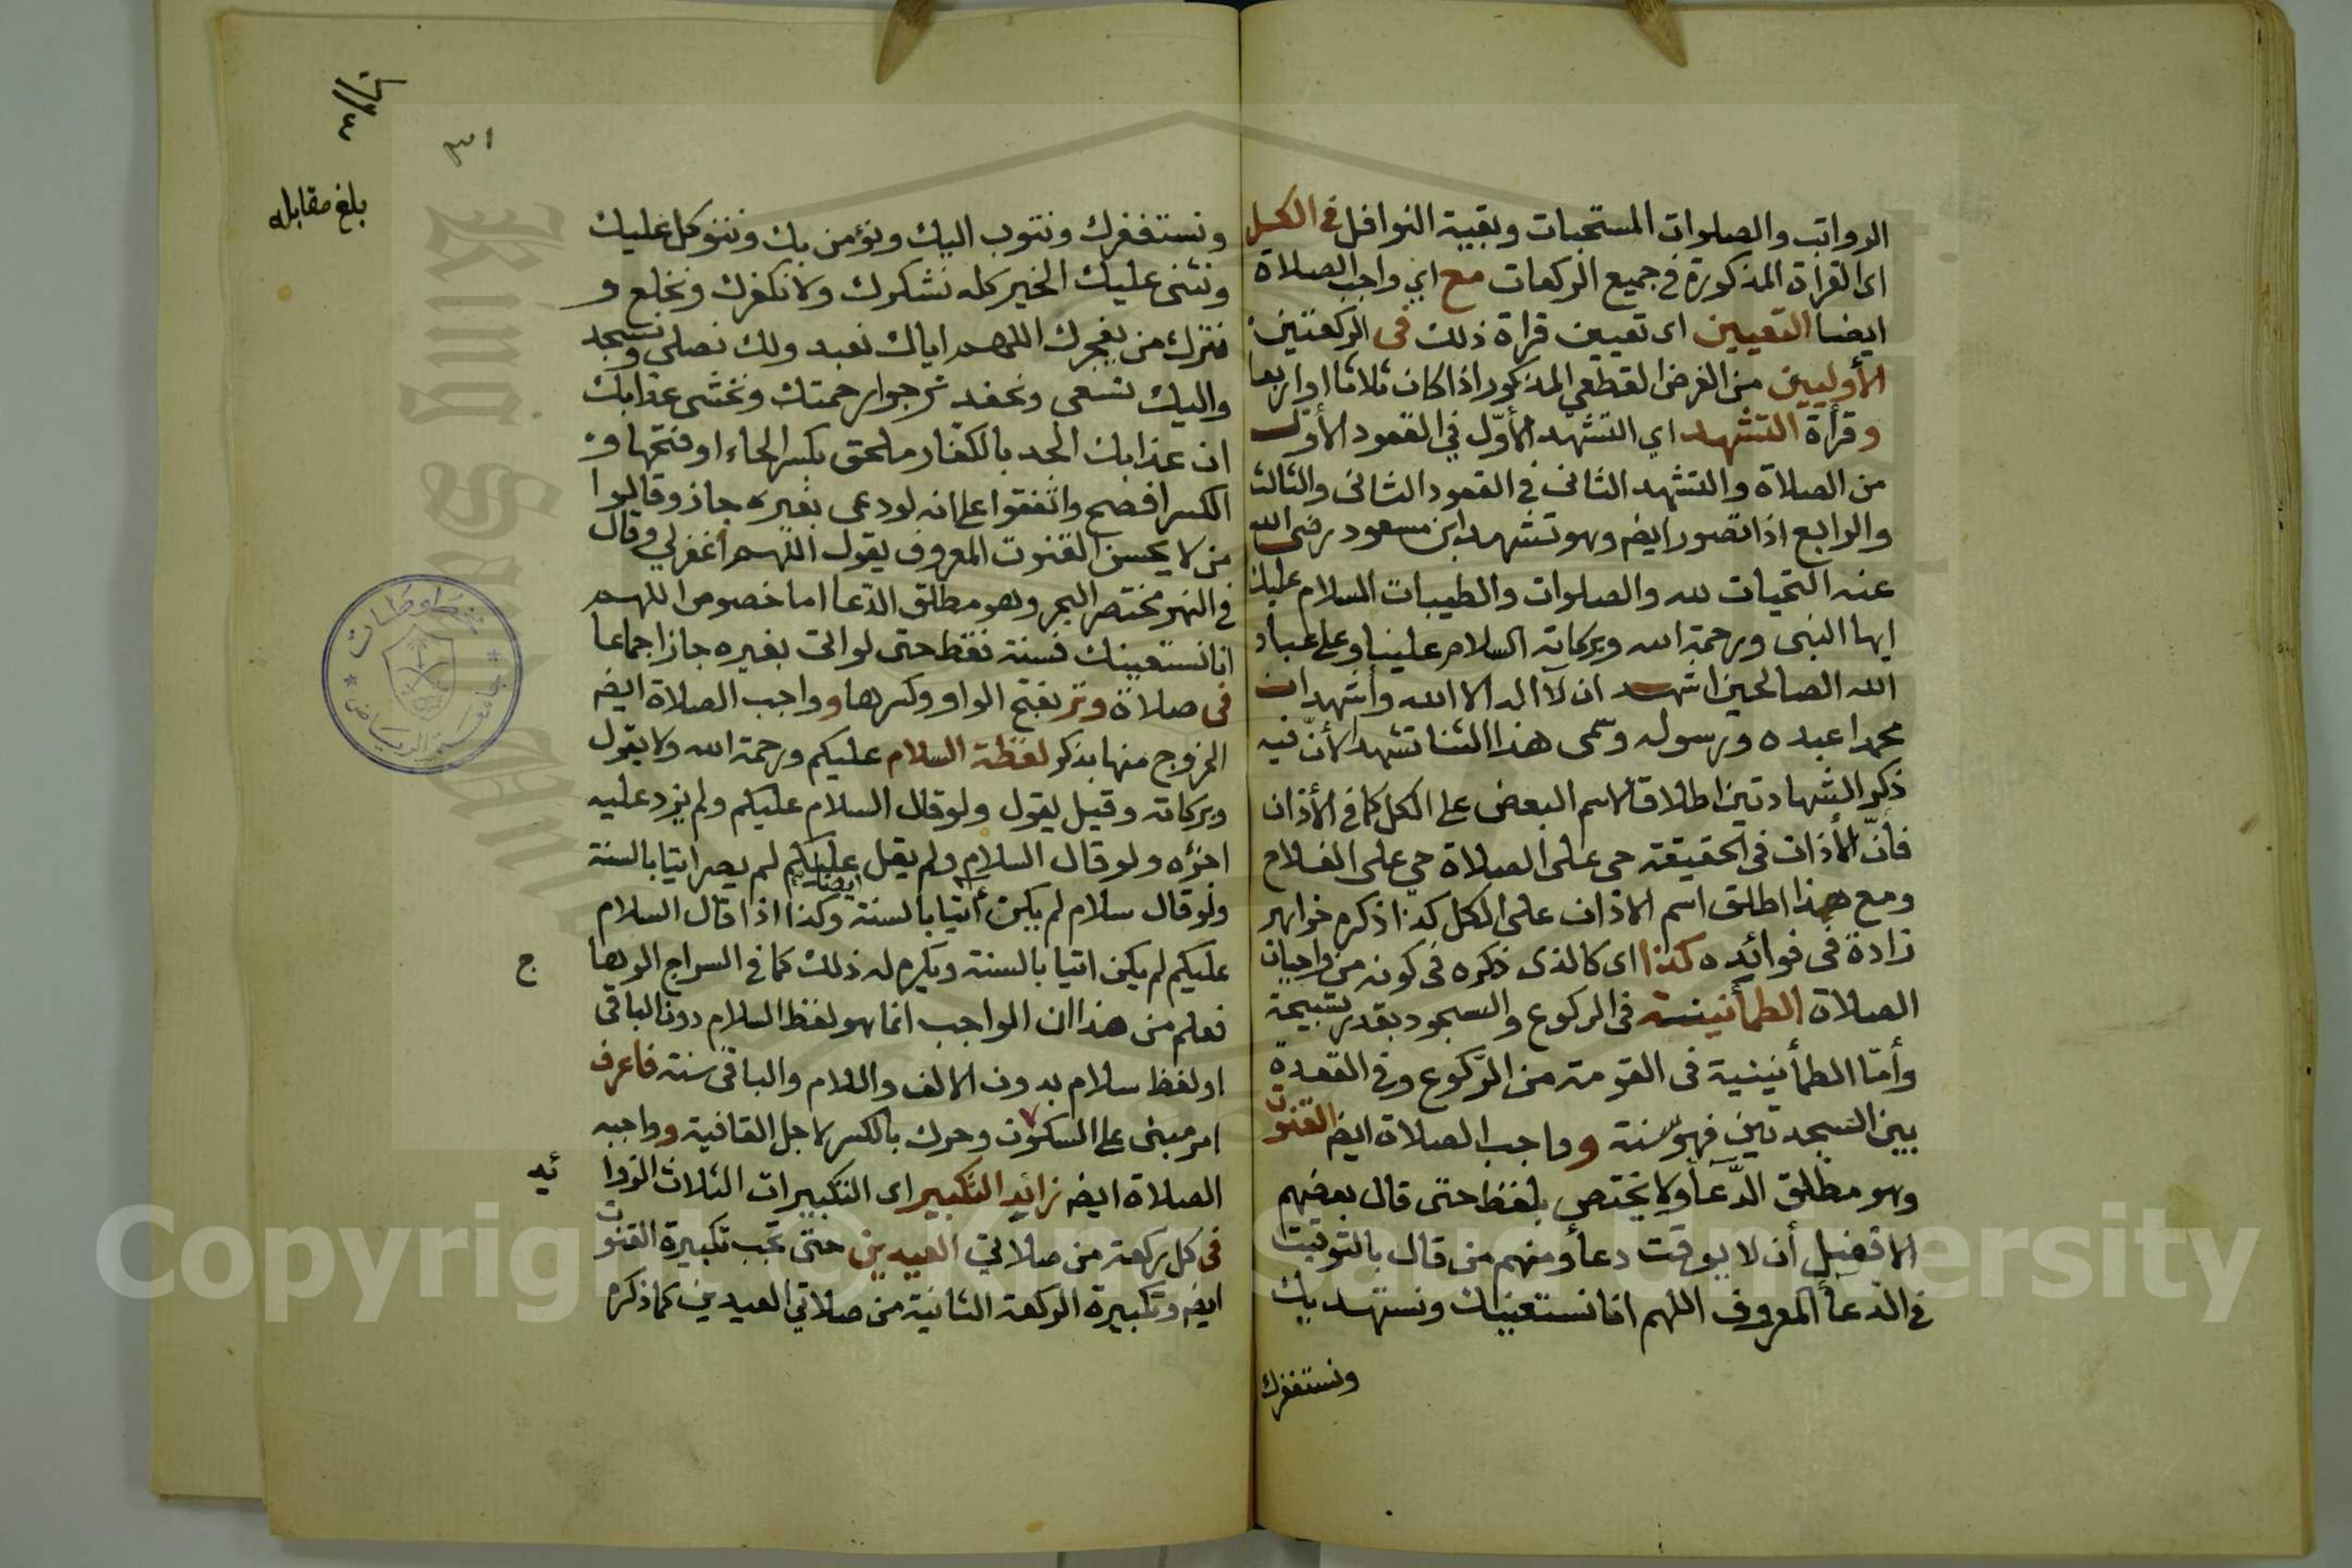 الرواتب والصلوات المستحبات وبقية النوافل في الكل
اى القراة المذكورة في جميع الركعات مع اي واجب الصلاة
ايضا التعيين اى تعيين قراة ذلك فى الركعتين
الأوليين من الفرض القطعي المذكور اذا كان ثلاثا او اربعا
وقرأة التشهد اي التشهد الأوّل في القعود الأول
من الصلاة والتشهد الثانى في القعود الثانى والثالث
والرابع اذا تصور ايض وهو تشهد ابن مسعود رضى الله
عنه التحيات لله والصلوات والطيبات السلام عليك
ايها النبى ورحمة الله وبركاته السلام علينا وعلى عباد
الله الصالحين اشهد ان لآ اله الا الله وأشهد ان
محمدا عبده ورسوله وسمى هذا الثنا تشهدا لأنّ فيه
ذكر الشهادتين اطلاقا لاسم البعض على الكل كما في الأذان
فانّ الأذان فى الحقيقة حى على الصلاة حي على الفلاح
ومع هذا اطلق اسم الاذان على الكل كذا ذكره خواهر
زادة فى فوائده كذا اى كالذى ذكره فى كونه من واجبات
الصلاة الطمأنينة فى الركوع والسجود بقدر تسبيحة
وأمّا الطمأنينية فى القومة من الرّكوع وفي القعدة
بين السجدتين فهو سنة و واجب الصلاة ايض القنوت
وهو مطلق الدّعآ ولا يختص بلفظ حتى قال بعضهم
الافضل أن لا يوقت دعأ ومنهم من قال بالتوقيت
في الدعأ المعروف اللهم انا نستعينك ونستهديك
ونستغفرك
٣١
بلغ مقابله
ونستغفرك ونتوب اليك ونؤمن بك ونتوكل عليك
ونثنى عليك الخير كله نشكرك ولا نكفرك ونخلع و
نترك من يفجرك اللهم اياك نعبد ولك نصلى ونسجد
واليك نسعى ونحفد نرجوا رحمتك ونخشى عذابك
ان عذابك الجد بالكفار ملحق بكسر الحاء او فتحها و
الكسر افصح واتفقوا على انه لو دعى بغيره جاز وقالوا
من لا يحسن القنوت المعروف يقول اللهم اغفرلي وقال
في النهر مختصر البحر وهو مطلق الدّعا اما خصوص اللهم
انا نستعينك فسنة فقط حتى لو اتى بغيره جاز اجماعا
فى صلاة وتر بفتح الواو وكسرها و واجب الصلاة ايض
الخروج منها بذكر لفظة السلام عليكم ورحمة الله ولا يقول
وبركاته وقيل يقول ولو قال السلام عليكم ولم يزد عليه
اجزؤه ولو قال السلام ولم يقل عليكم لم يصر اتيا بالسنة
ولو قال سلام لم يكن أتيا بالسنة ايضا وكذا اذا قال السلام
عليكم لم يكن اتيا بالسنة ويكره له ذلك كما في السراج الوها
ج
فعلم من هذا ان الواجب انما هو لفظ السلام دون الباقى
او لفظ سلام بدون الالف واللام والباقى سنة فاعرف
امر مبنى على السكون وحرك بالكسر لاجل القافية و واجبه
الصلاة ايض زائد التكبير اى التكبيرات الثلاث الزوا
ئد
فى كل ركعة من صلاتي العيدين حتى تجب تكبيرة القنوت
ايض وتكبيرة الركعة الثانية من صلاتي العيدين كما ذكره
Copyright © King Saud University